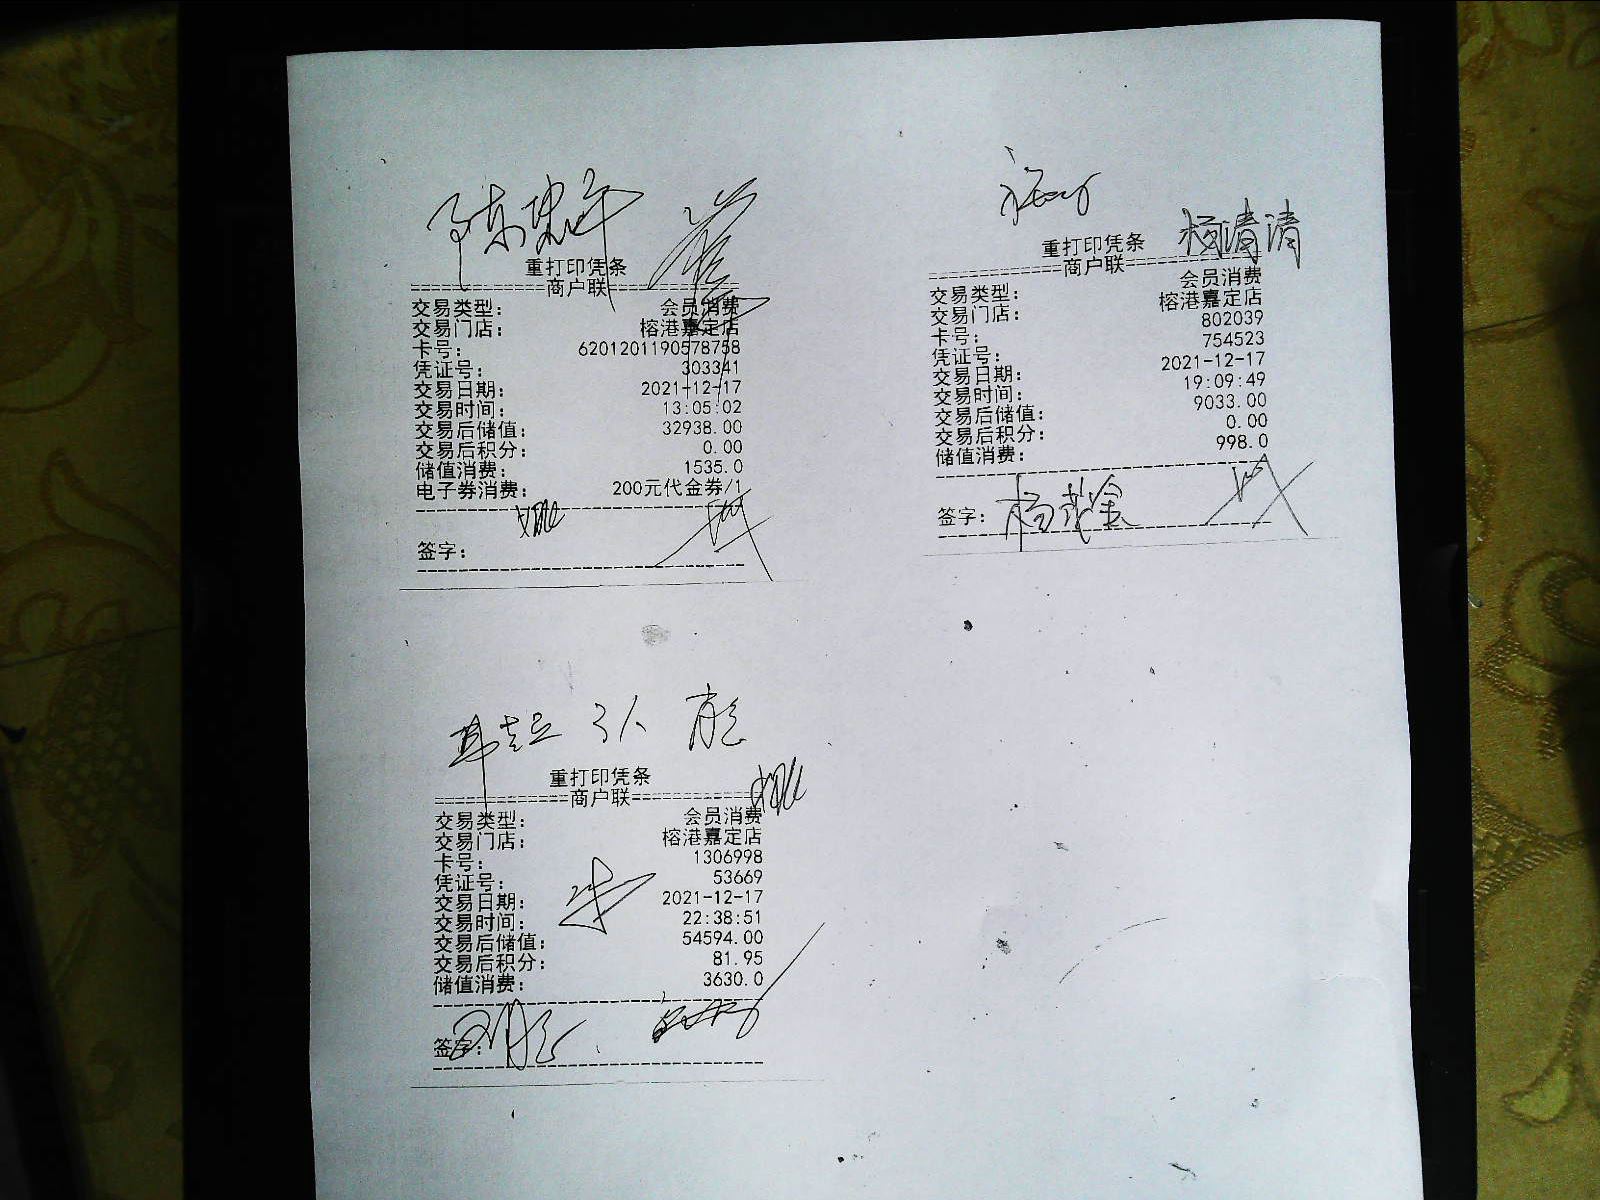 重打印凭条
============商户联============
交易类型： 会员消费
交易门店： 榕港嘉定店
卡号： 6201201190578758
凭证号： 303341
交易日期： 2021-12-17
交易时间： 13:05:02
交易后储值： 32938.00
交易后积分： 0.00
储值消费： 1535.0
电子券消费： 200元代金券/1
签字：
杨清清
重打印凭条
============商户联============
交易类型： 会员消费
交易门店： 榕港嘉定店
卡号： 802039
凭证号： 754523
交易日期： 2021-12-17
交易时间： 19:09:49
交易后储值： 9033.00
交易后积分： 0.00
储值消费： 998.0
签字：
重打印凭条
============商户联============
交易类型： 会员消费
交易门店： 榕港嘉定店
卡号： 1306998
凭证号： 53669
交易日期： 2021-12-17
交易时间： 22:38:51
交易后储值： 54594.00
交易后积分： 81.95
储值消费： 3630.0
签字：